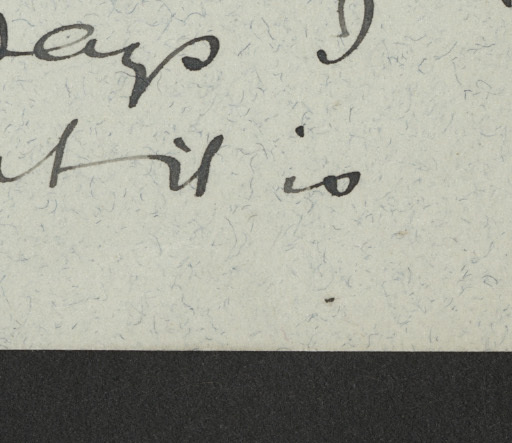 says I
it is